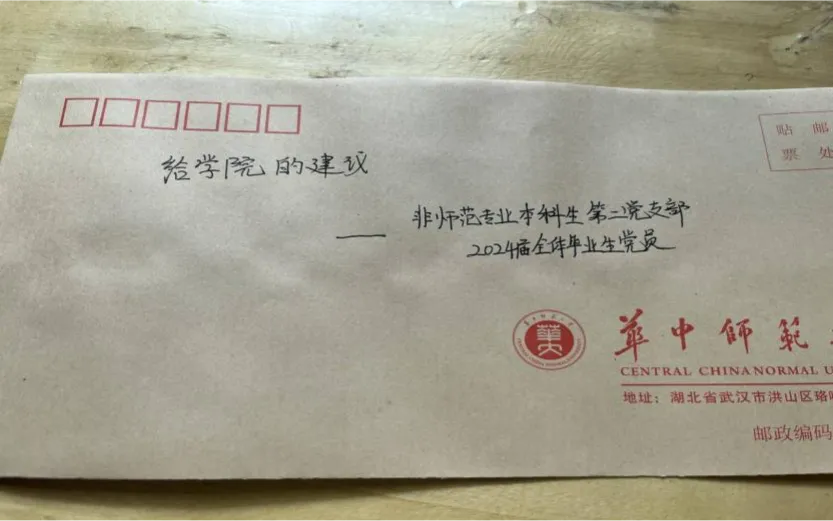 贴邮
票处
给学院的建议
非师范专业本科生第二党支部
——2024届全体毕业生党员
華中師範
CENTRAL CHINA NORMAL U
地址：湖北省武汉市洪山区珞
邮政编码